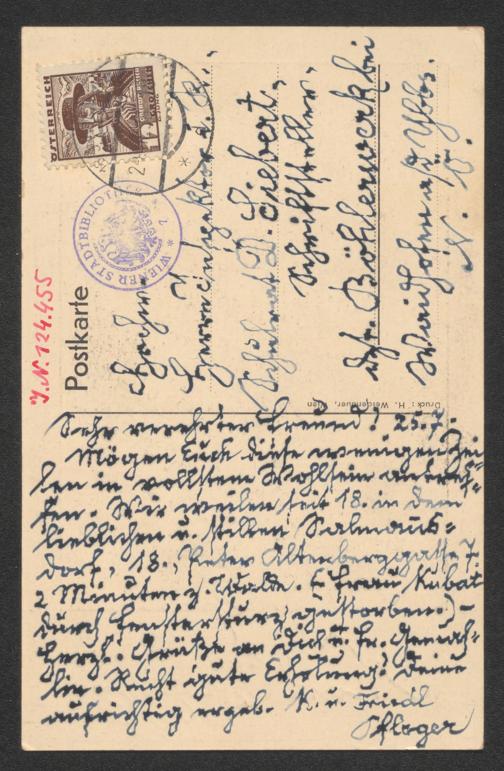 ÖSTERREICH
* WIENER STADTBIBLIOTHEK *
J.N. 124.455
Postkarte
Hochw.
Herrn Inspektor d. R.
Schulrat D. Siebert,
Schriftsteller,
dzt. Böhlerwerk bei
Waidhofen a/d Ybbs.
N. Ö.
Druck: H. Weidenauer, Wien
Sehr verehrter Freund! 25.7.
Mögen Euch diese wenigen Zei-
len in vollstem Wohlsein antref-
fen. Wir weilen seit 18. in dem
lieblichen u. stillen Salmans-
dorf, 18., Peter Altenberggasse 7.
2 Minuten z. Walde. (Frau Kubat
durch Fenstersturz gestorben.) –
Herzl. Grüße an Dich u. Fr. Gemah-
lin. Recht gute Erholung! Deine
aufrichtig ergeb. K. u. Friedl
Pfleger